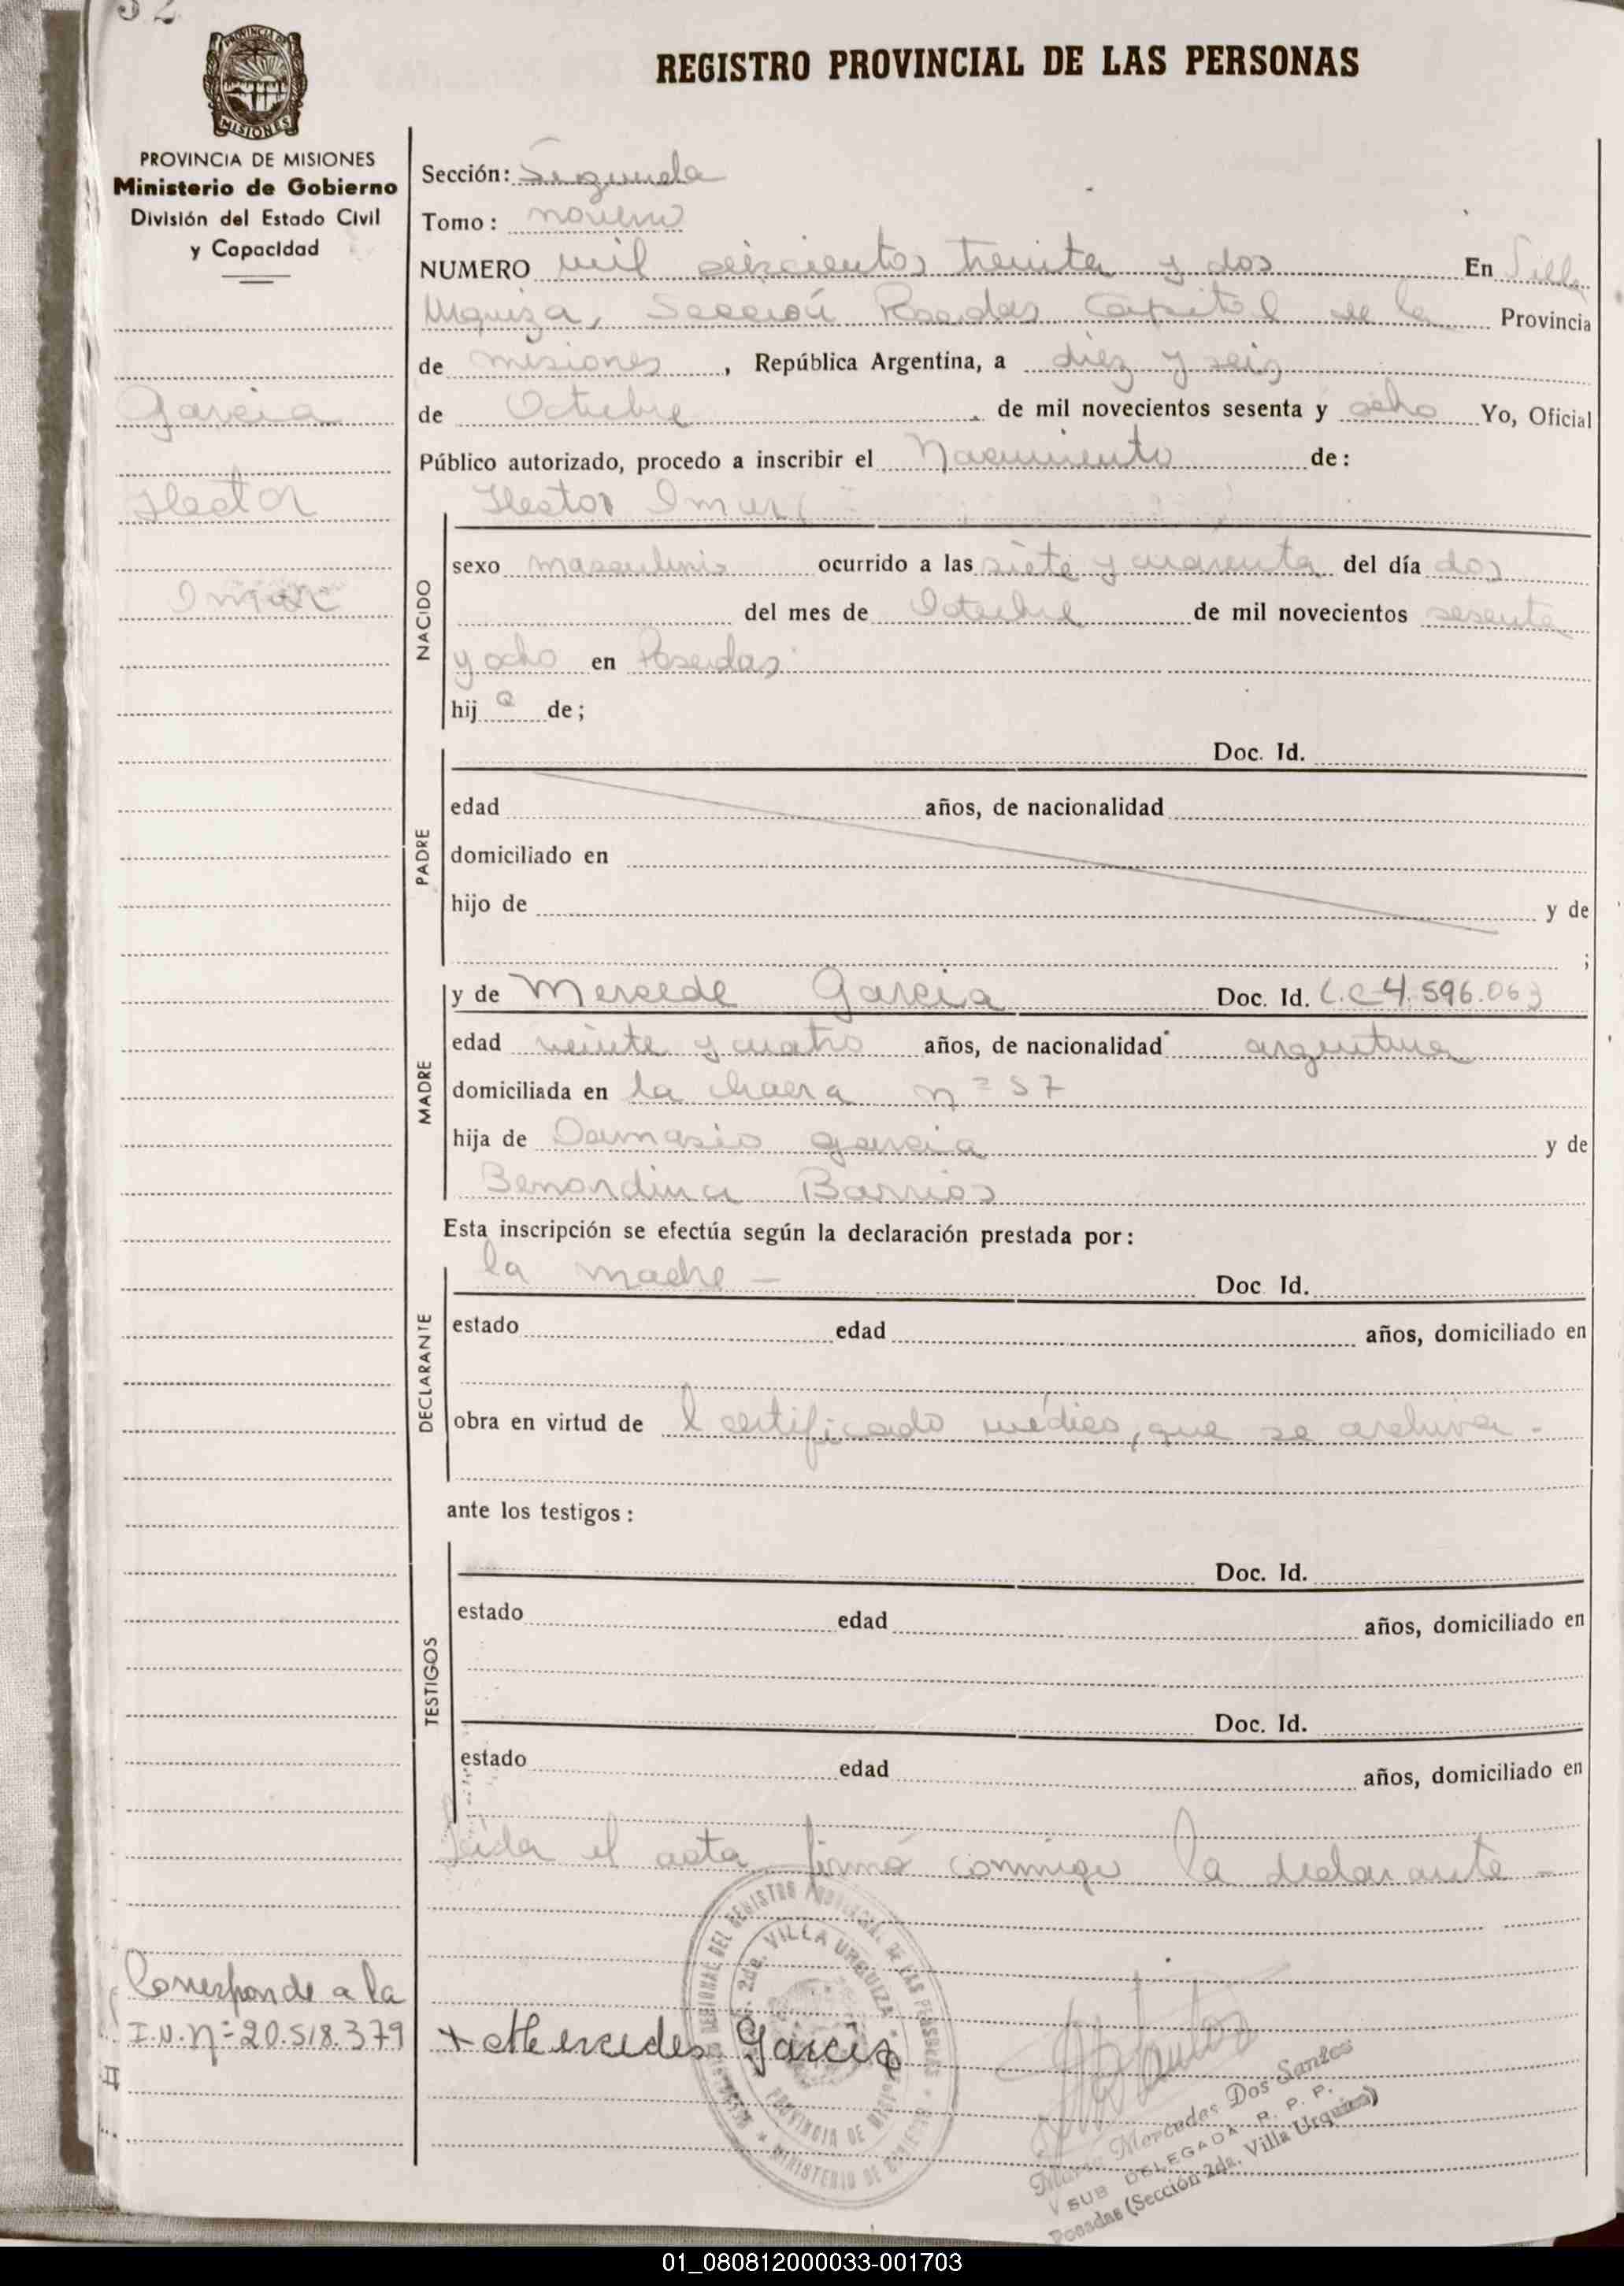 32
REGISTRO PROVINCIAL DE LAS PERSONAS
PROVINCIA DE MISIONES
MISIONES
PROVINCIA DE MISIONES
Ministerio de Gobierno
División del Estado Civil
y Capacidad
Garcia
Hector
Sección: Segunda
Tomo: noveno
NUMERO mil seiscientos treinta y dos En Villa
Urquiza, Sección Posadas Capital de la Provincia
de misiones, República Argentina, a diez y seis
de Octubre de mil novecientos sesenta y ocho Yo, Oficial
Público autorizado, procedo a inscribir el Nacimiento de:
Hector
NACIDO
sexo masculino ocurrido a las siete y cuarenta del día dos
del mes de Octubre de mil novecientos sesenta
y ocho en Posadas
hij o de;
PADRE
Doc. Id.
edad años, de nacionalidad
domiciliado en
hijo de y de
;
MADRE
y de Mercede Garcia Doc. Id. L.C 4.596.063
edad veinte y cuatro años, de nacionalidad argentina
domiciliada en la chacra nº 57
hija de Damasio Garcia y de
Bernardina Barrios
Esta inscripción se efectúa según la declaración prestada por:
DECLARANTE
la madre - Doc. Id.
estado edad años, domiciliado en
obra en virtud de l certificado médico, que se archiva.-
ante los testigos:
TESTIGOS
Doc. Id.
estado edad años, domiciliado en
Doc. Id.
estado edad años, domiciliado en
Leida el acta firmó conmigo la declarante -
Corresponde a la
I.N. nº 20.518.379
II
+ Mercedes Garcia
REGIONAL DEL REGISTRO PROVINCIAL DE LAS PERSONAS
2da. VILLA URQUIZA
PROVINCIA DE MISIONES
MINISTERIO DE GOBIERNO
Maria Mercedes Dos Santos
SUB DELEGADA R. P. P.
Posadas (Sección 2da. Villa Urquiza)
01_080812000033-001703